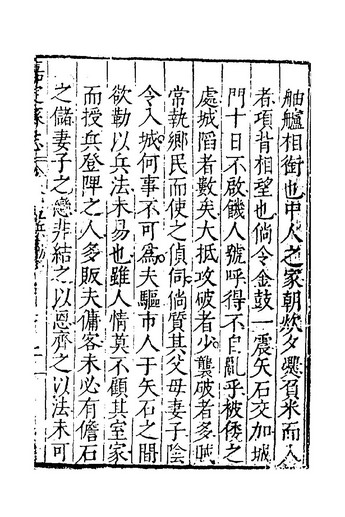 舳艫相銜也中人之家朝炊夕㸑負米而入
者項背相望也倘令金鼓一震矢石交加城
門十日不啟饑人號呼得不自亂乎被倭之
處城陷者數矣大抵攻破者少襲破者多賊
常執鄉民而使之偵伺倘質其父母妻子陰
令入城何事不可爲夫驅市人于矢石之間
欲勒以兵法未易也雖人情莫不顧其室家
而授兵登陴之人多販夫傭客未必有儋石
之儲妻子之戀非結之以恩齊之以法未可